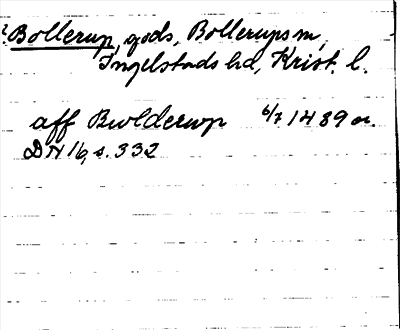 ? Bollerup, gods, Bollerups m,
Ingelstads hd, Krist. l.
aff Bwlderwp 6/7 1489 or.
DN 16, s. 332